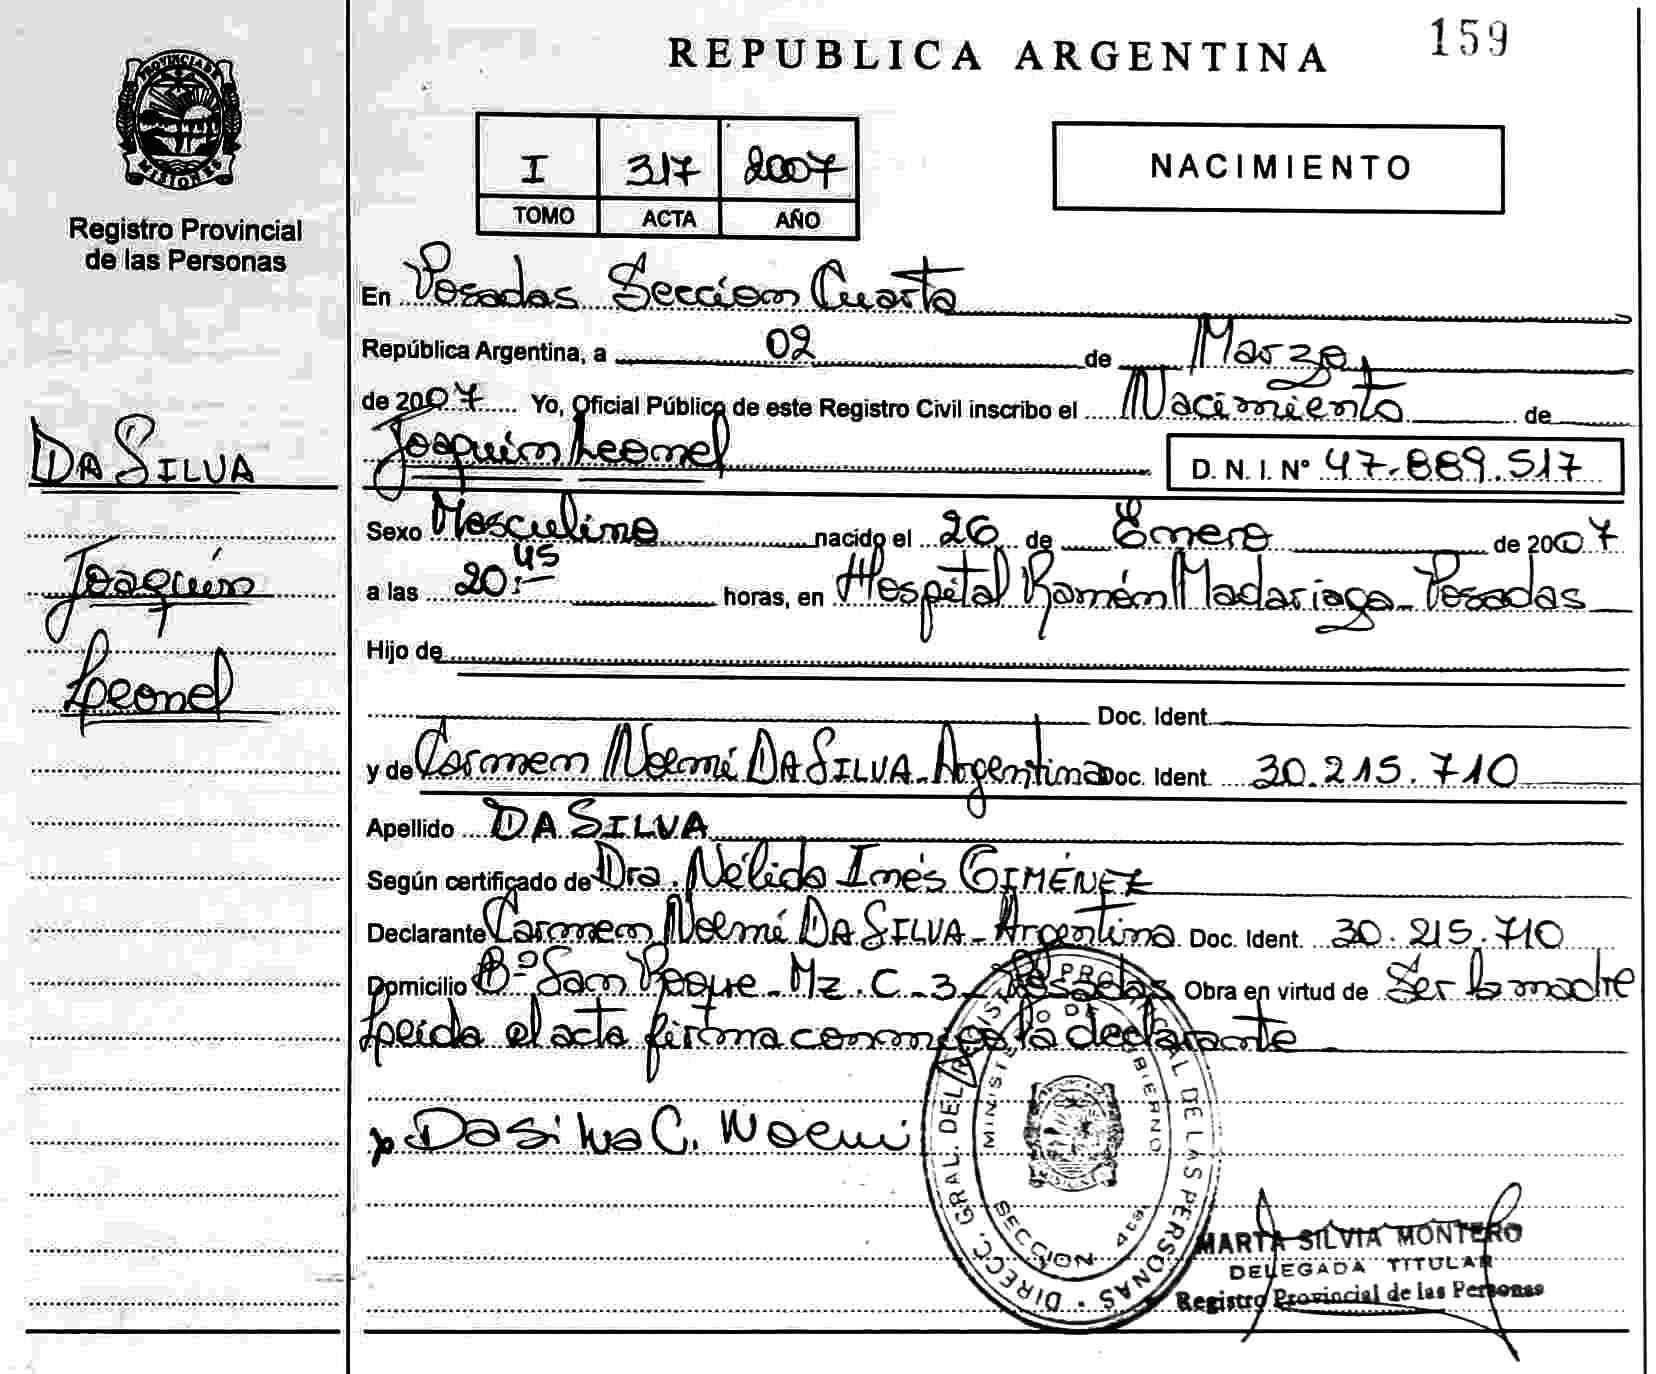 159
REPUBLICA ARGENTINA
PROVINCIA DE
MISIONES
Registro Provincial
de las Personas
I 317 2007
TOMO ACTA AÑO
NACIMIENTO
En Posadas Sección Cuarta
República Argentina, a 02 de Marzo
de 2007 Yo, Oficial Público de este Registro Civil inscribo el Nacimiento de
Joaquín Leonel D. N. I. Nº 47.889.517
DA SILVA
Joaquín
Leonel
Sexo Masculino nacido el 26 de Enero de 2007
a las 20:45 horas, en Hospital Ramón Madariaga - Posadas
Hijo de
Doc. Ident.
y de Carmen Noemí DA SILVA - Argentina Doc. Ident. 30.215.710
Apellido DA SILVA
Según certificado de Dra. Nélida Inés GIMÉNEZ
Declarante Carmen Noemí DA SILVA - Argentina Doc. Ident. 30.215.710
Domicilio Bº San Roque - Mz. C - 3 - Posadas Obra en virtud de Ser la madre
Leida el acta firma conmigo la declarante
Dasilva C. Noemi
DIRECC. GRAL. DEL REGISTRO PROVINCIAL DE LAS PERSONAS
MINISTERIO DE GOBIERNO
SECCION 4ta
MARTA SILVIA MONTERO
DELEGADA TITULAR
Registro Provincial de las Personas